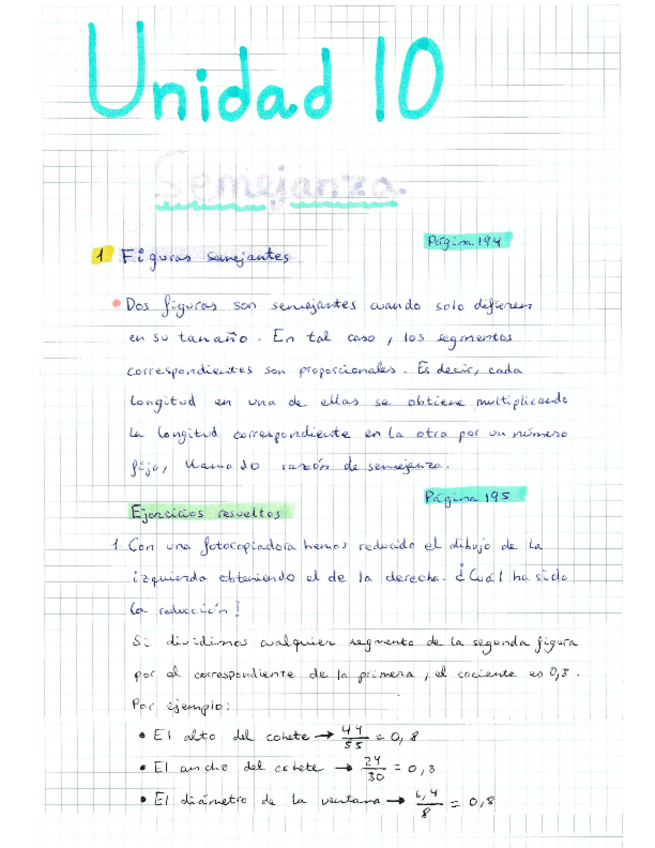 Unidad 10
Semejanza.
Página 194
1 Figuras semejantes
• Dos figuras son semejantes cuando solo difieren
en su tamaño. En tal caso, los segmentos
correspondientes son proporcionales. Es decir, cada
longitud en una de ellas se obtiene multiplicando
la longitud correspondiente en la otra por un número
fijo, llamado razón de semejanza.
Página 195
Ejercicios resueltos
1. Con una fotocopiadora hemos reducido el dibujo de la
izquierda obteniendo el de la derecha. ¿Cuál ha sido
la reducción?
Si dividimos cualquier segmento de la segunda figura
por el correspondiente de la primera, el cociente es 0,8.
Por ejemplo:
• El alto del cohete → 44/55 = 0,8
• El ancho del cohete → 24/30 = 0,8
• El diámetro de la ventana → 6,4/8 = 0,8